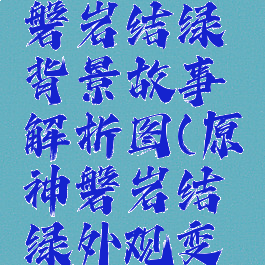 磐岩结绿
背景故事
解析图(原
神磐岩结
绿外观变